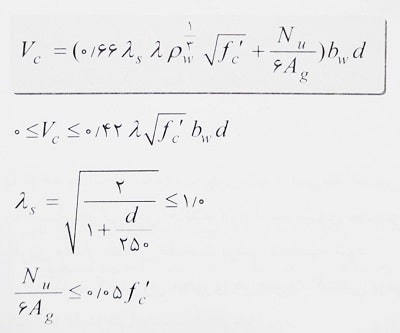 V_c = (۰/۶۶ λ_s λ ρ_w^{۱/۳} √f_c' + N_u / ۶A_g) b_w d
۰ ≤ V_c ≤ ۰/۴۲ λ √f_c' b_w d
λ_s = √(۲ / (۱ + d / ۲۵۰)) ≤ ۱/۰
N_u / ۶A_g ≤ ۰/۰۵ f_c'